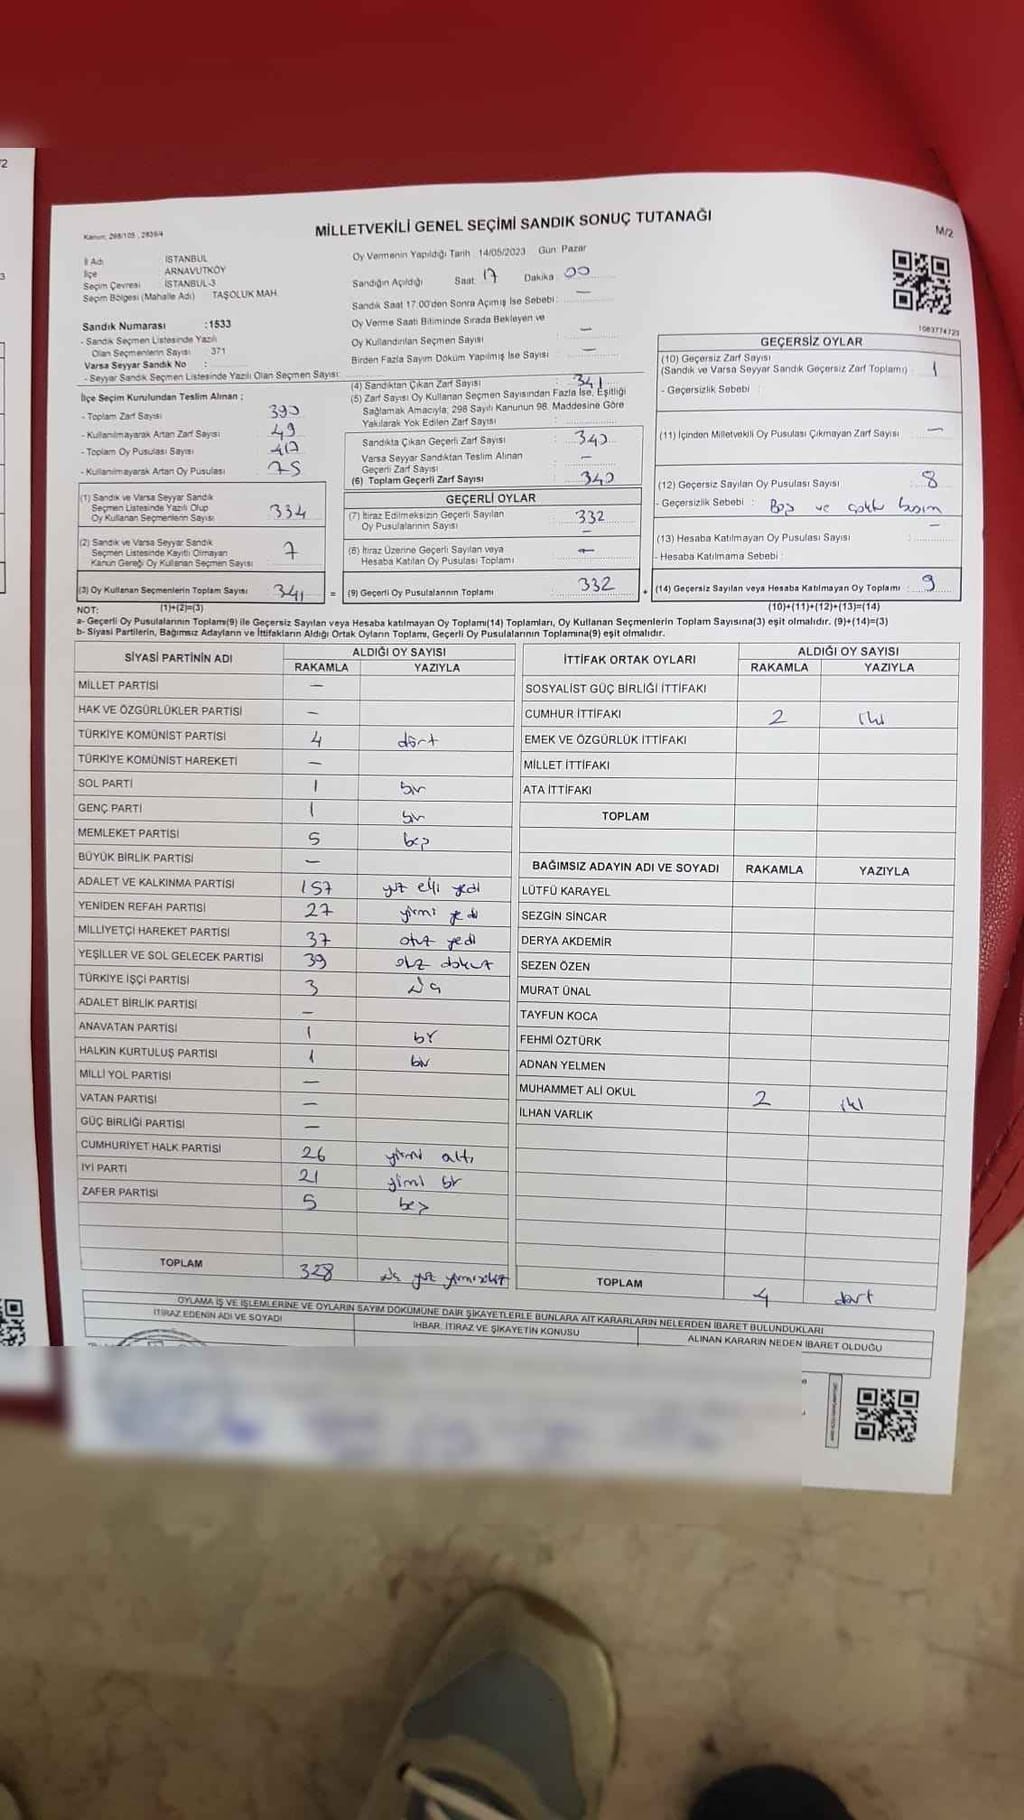 MİLLETVEKİLİ GENEL SEÇİMİ SANDIK SONUÇ TUTANAĞI
Kanun: 298/105 , 2839/4
M/2
İl Adı : İSTANBUL
İlçe : ARNAVUTKÖY
Seçim Çevresi : İSTANBUL-3
Seçim Bölgesi (Mahalle Adı) : TAŞOLUK MAH.
Sandık Numarası :1533
- Sandık Seçmen Listesinde Yazılı
Olan Seçmenlerin Sayısı : 371
Varsa Seyyar Sandık No :
- Seyyar Sandık Seçmen Listesinde Yazılı Olan Seçmen Sayısı:
Oy Vermenin Yapıldığı Tarih : 14/05/2023 Gün: Pazar
Sandığın Açıldığı Saat: 17 Dakika: 00
Sandık Saat 17.00'den Sonra Açımış İse Sebebi: —
Oy Verme Saati Bitiminde Sırada Bekleyen ve
Oy Kullandırılan Seçmen Sayısı : —
Birden Fazla Sayım Döküm Yapılmış İse Sayısı : —
1083774723
İlçe Seçim Kurulundan Teslim Alınan ;
- Toplam Zarf Sayısı : 390
- Kullanılmayarak Artan Zarf Sayısı : 49
- Toplam Oy Pusulası Sayısı : 417
- Kullanılmayarak Artan Oy Pusulası : 75
(1) Sandık ve Varsa Seyyar Sandık
Seçmen Listesinde Yazılı Olup
Oy Kullanan Seçmenlerin Sayısı : 334
(2) Sandık ve Varsa Seyyar Sandık
Seçmen Listesinde Kayıtlı Olmayan
Kanun Gereği Oy Kullanan Seçmen Sayısı : 7
(3) Oy Kullanan Seçmenlerin Toplam Sayısı : 341
(1)+(2)=(3)
(4) Sandıktan Çıkan Zarf Sayısı : 341
(5) Zarf Sayısı Oy Kullanan Seçmen Sayısından Fazla İse, Eşitliği
Sağlamak Amacıyla, 298 Sayılı Kanunun 98. Maddesine Göre
Yakılarak Yok Edilen Zarf Sayısı :
Sandıkta Çıkan Geçerli Zarf Sayısı : 340
Varsa Seyyar Sandıktan Teslim Alınan
Geçerli Zarf Sayısı : —
(6) Toplam Geçerli Zarf Sayısı : 340
GEÇERLİ OYLAR
(7) İtiraz Edilmeksizin Geçerli Sayılan
Oy Pusulalarının Sayısı : 332
(8) İtiraz Üzerine Geçerli Sayılan veya
Hesaba Katılan Oy Pusulası Toplamı : —
= (9) Geçerli Oy Pusulalarının Toplamı : 332 +
GEÇERSİZ OYLAR
(10) Geçersiz Zarf Sayısı
(Sandık ve Varsa Seyyar Sandık Geçersiz Zarf Toplamı) : 1
- Geçersizlik Sebebi :
(11) İçinden Milletvekili Oy Pusulası Çıkmayan Zarf Sayısı : —
(12) Geçersiz Sayılan Oy Pusulası Sayısı : 8
- Geçersizlik Sebebi : Boş ve çoklu basım
(13) Hesaba Katılmayan Oy Pusulası Sayısı : —
- Hesaba Katılmama Sebebi :
(14) Geçersiz Sayılan veya Hesaba Katılmayan Oy Toplamı : 9
(10)+(11)+(12)+(13)=(14)
NOT:
a- Geçerli Oy Pusulaları Toplamı(9) ile Geçersiz Sayılan veya Hesaba katılmayan Oy Toplamı(14) Toplamları, Oy Kullanan Seçmenlerin Toplam Sayısına(3) eşit olmalıdır. (9)+(14)=(3)
b- Siyasi Partilerin, Bağımsız Adayların ve İttifakların Aldığı Ortak Oyların Toplamı, Geçerli Oy Pusulalarının Toplamına(9) eşit olmalıdır.
SİYASİ PARTİNİN ADI ALDIĞI OY SAYISI
RAKAMLA YAZIYLA
MİLLET PARTİSİ —
HAK VE ÖZGÜRLÜKLER PARTİSİ —
TÜRKİYE KOMÜNİST PARTİSİ 4 dört
TÜRKİYE KOMÜNİST HAREKETİ —
SOL PARTİ 1 bir
GENÇ PARTİ 1 bir
MEMLEKET PARTİSİ 5 beş
BÜYÜK BİRLİK PARTİSİ —
ADALET VE KALKINMA PARTİSİ 157 yüz elli yedi
YENİDEN REFAH PARTİSİ 27 yirmi yedi
MİLLİYETÇİ HAREKET PARTİSİ 37 otuz yedi
YEŞİLLER VE SOL GELECEK PARTİSİ 39 otuz dokuz
TÜRKİYE İŞÇİ PARTİSİ 3 üç
ADALET BİRLİK PARTİSİ —
ANAVATAN PARTİSİ 1 bir
HALKIN KURTULUŞ PARTİSİ 1 bir
MİLLİ YOL PARTİSİ —
VATAN PARTİSİ —
GÜÇ BİRLİĞİ PARTİSİ —
CUMHURİYET HALK PARTİSİ 26 yirmi altı
İYİ PARTİ 21 yirmi bir
ZAFER PARTİSİ 5 beş
TOPLAM 328 üç yüz yirmi sekiz
İTTİFAK ORTAK OYLARI ALDIĞI OY SAYISI
RAKAMLA YAZIYLA
SOSYALİST GÜÇ BİRLİĞİ İTTİFAKI
CUMHUR İTTİFAKI 2 iki
EMEK VE ÖZGÜRLÜK İTTİFAKI
MİLLET İTTİFAKI
ATA İTTİFAKI
TOPLAM
BAĞIMSIZ ADAYIN ADI VE SOYADI RAKAMLA YAZIYLA
LÜTFÜ KARAYEL
SEZGİN SİNCAR
DERYA AKDEMİR
SEZEN ÖZEN
MURAT ÜNAL
TAYFUN KOCA
FEHMİ ÖZTÜRK
ADNAN YELMEN
MUHAMMET ALİ OKUL 2 iki
İLHAN VARLIK
TOPLAM 4 dört
OYLAMA İŞ VE İŞLEMLERİNE VE OYLARIN SAYIM DÖKÜMÜNE DAİR ŞİKAYETLERLE BUNLARA AİT KARARLARIN NELERDEN İBARET BULUNDUKLARI
İTİRAZ EDENİN ADI VE SOYADI İHBAR, İTİRAZ VE ŞİKAYETİN KONUSU ALINAN KARARIN NEDEN İBARET OLDUĞU